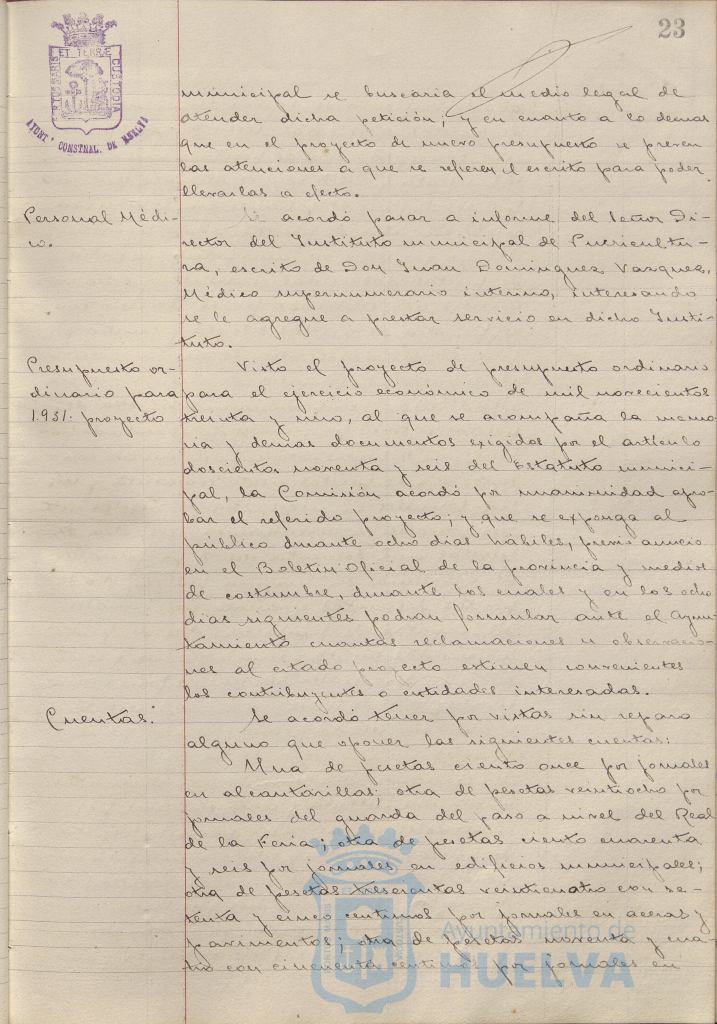 23
PORTUS MARIS ET TERRÆ CUSTODIA
AYUNT.º CONSTNAL. DE HUELVA
municipal se buscaria el medio legal de
atender dicha petición; y en cuanto a lo demas
que en el proyecto de nuevo presupuesto se preven
las atenciones a que se refiere el escrito para poder
llevarlas a efecto.
Personal Médi-
co.
Se acordó pasar a informe del Señor Di-
rector del Instituto municipal de Puericultu-
ra, escrito de Don Juan Dominguez Vazquez,
Médico supernumerario interino, interesando
se le agregue a prestar servicio en dicho Insti-
tuto.
Presupuesto or-
dinario para
1.931: proyecto
Visto el proyecto de presupuesto ordinario
para el ejercicio económico de mil novecientos
treinta y uno, al que se acompaña la memo-
ria y demas documentos exigidos por el artículo
doscientos noventa y seis del Estatuto munici-
pal, la Comisión acordó por unanimidad apro-
bar el referido proyecto; y que se exponga al
público durante ocho dias hábiles, previo anuncio
en el Boletin Oficial de la provincia y medios
de costumbre, durante los cuales y en los ocho
dias siguientes podran formular ante el Ayun-
tamiento cuantas reclamaciones u observacio-
nes al citado proyecto estimen convenientes
los contribuyentes o entidades interesadas.
Cuentas.
Se acordó tener por vistas sin reparo
alguno que oponer las siguientes cuentas:
Una de pesetas ciento once por jornales
en alcantarillas; otra de pesetas veintiocho por
jornales del guarda del paso a nivel del Real
de la Feria; otra de pesetas ciento cuarenta
y seis por jornales en edificios municipales;
otra de pesetas trescientas veinticuatro con se-
tenta y cinco centimos por jornales en aceras y
pavimentos; otra de pesetas noventa y cua-
tro con cincuenta centimos por jornales en
Ayuntamiento de
HUELVA